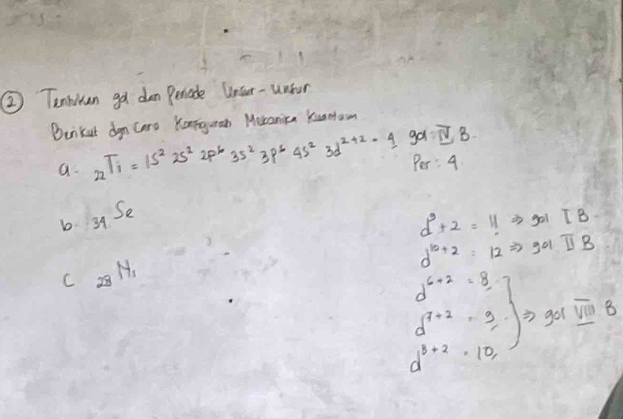 ② Tentukan gol dan Periode Unsur-unsur
Berikut dgn Cara Konfigurasi Mekanika Kuantum
a. ₂₂Ti = 1S² 2S² 2P⁶ 3S² 3P⁶ 4S² 3d²⁺² = 4 gol IV B.
Per : 4
b. ₃₄Se
c ₂₈Ni
d⁹+2 = 11 ⇒ gol I B
d¹⁰⁺² = 12 ⇒ gol II B
d⁶⁺² = 8
d⁷⁺² = 9 } ⇒ gol VIII B
d⁸⁺² = 10